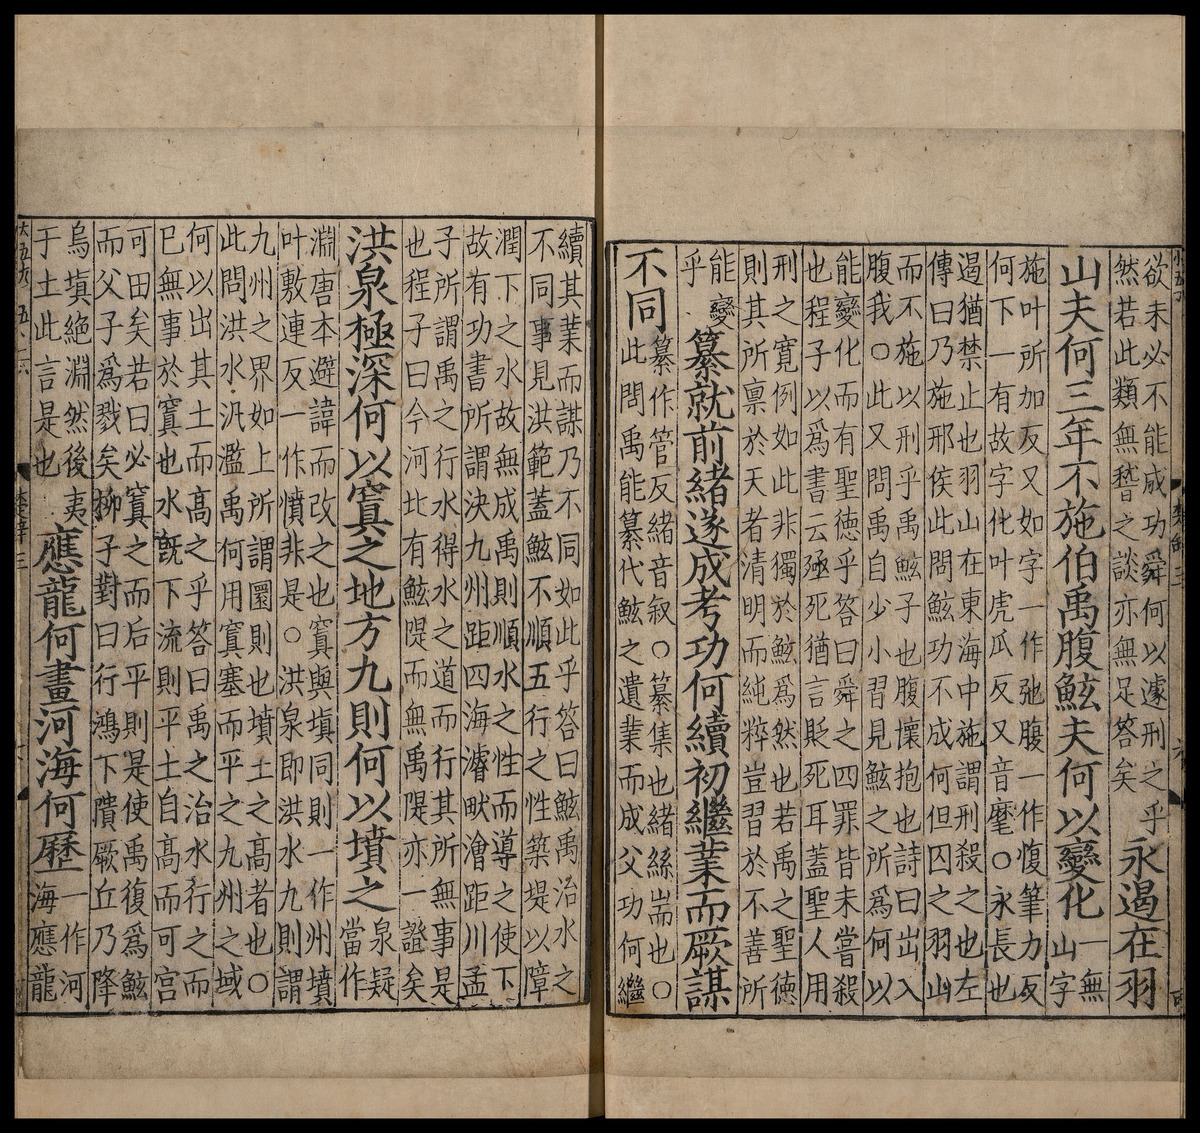 欲未必不能成功舜何以遽刑之乎
然若此類無稽之談亦無足答矣
永遏在羽
山夫何三年不施伯禹腹鮌夫何以變化
一無
山字
施叶所加反又如字一作弛腹一作愎筆力反
何下一有故字化叶虎瓜反又音麾○永長也
遏猶禁止也羽山在東海中施謂刑殺之也左
傳曰乃施邢侯此問鮌功不成何但囚之羽山
而不施以刑乎禹鮌子也腹懷抱也詩曰出入
腹我○此又問禹自少小習見鮌之所爲何以
能變化而有聖德乎答曰舜之四罪皆未嘗殺
也程子以爲書云殛死猶言貶死耳蓋聖人用
刑之寬例如此非獨於鮌爲然也若禹之聖德
則其所稟於天者清明而純粹豈習於不善所
能變
乎
纂就前緒遂成考功何續初繼業而厥謀
不同
纂作管反緒音叙○纂集也緒絲耑也○
此問禹能纂代鮌之遺業而成父功何繼
續其業而謀乃不同如此乎答曰鮌禹治水之
不同事見洪範蓋鮌不順五行之性築堤以障
潤下之水故無成禹則順水之性而導之使下
故有功書所謂決九州距四海濬畎澮距川孟
子所謂禹之行水得水之道而行其所無事是
也程子曰今河北有鮌隄而無禹隄亦一證矣
洪泉極深何以窴之地方九則何以墳之
泉疑
當作
淵唐本避諱而改之也窴與塡同則一作州墳
叶敷連反一作憤非是○洪泉即洪水九則謂
九州之界如上所謂圜則也墳土之高者也○
此問洪水汎濫禹何用窴塞而平之九州之域
何以出其土而高之乎答曰禹之治水行之而
已無事於窴也水旣下流則平土自高而可宮
可田矣若曰必窴之而后平則是使禹復爲鮌
而父子爲戮矣柳子對曰行鴻下隤厥丘乃降
烏塡絕淵然後夷
于土此言是也
應龍何畫河海何歷
一作河
海應龍